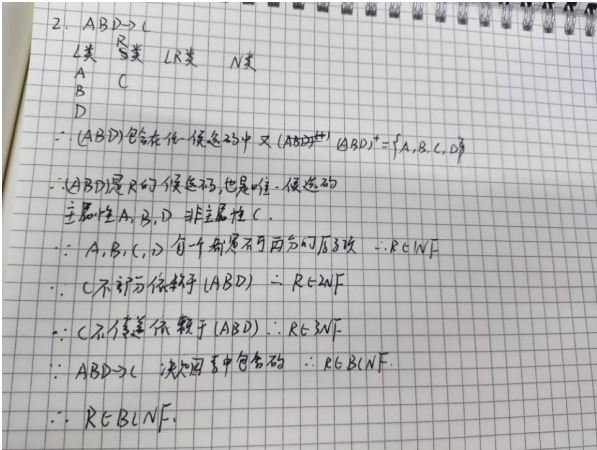 2. ABD→C
L类 R类 LR类 N类
A C
B
D
∴(ABD)包含在任一候选码中 又 (ABD)⁺={A,B,C,D}
∴(ABD)是R的候选码,也是唯一候选码
主属性A,B,D 非主属性C.
∵ A,B,C,D每一个都是不可再分的数据项 ∴R∈1NF
∵ C不部分依赖于(ABD) ∴ R∈2NF
∵ C不传递依赖于(ABD) ∴R∈3NF
∵ ABD→C 决定因素中包含码 ∴ R∈BCNF.
∴ R∈BCNF.